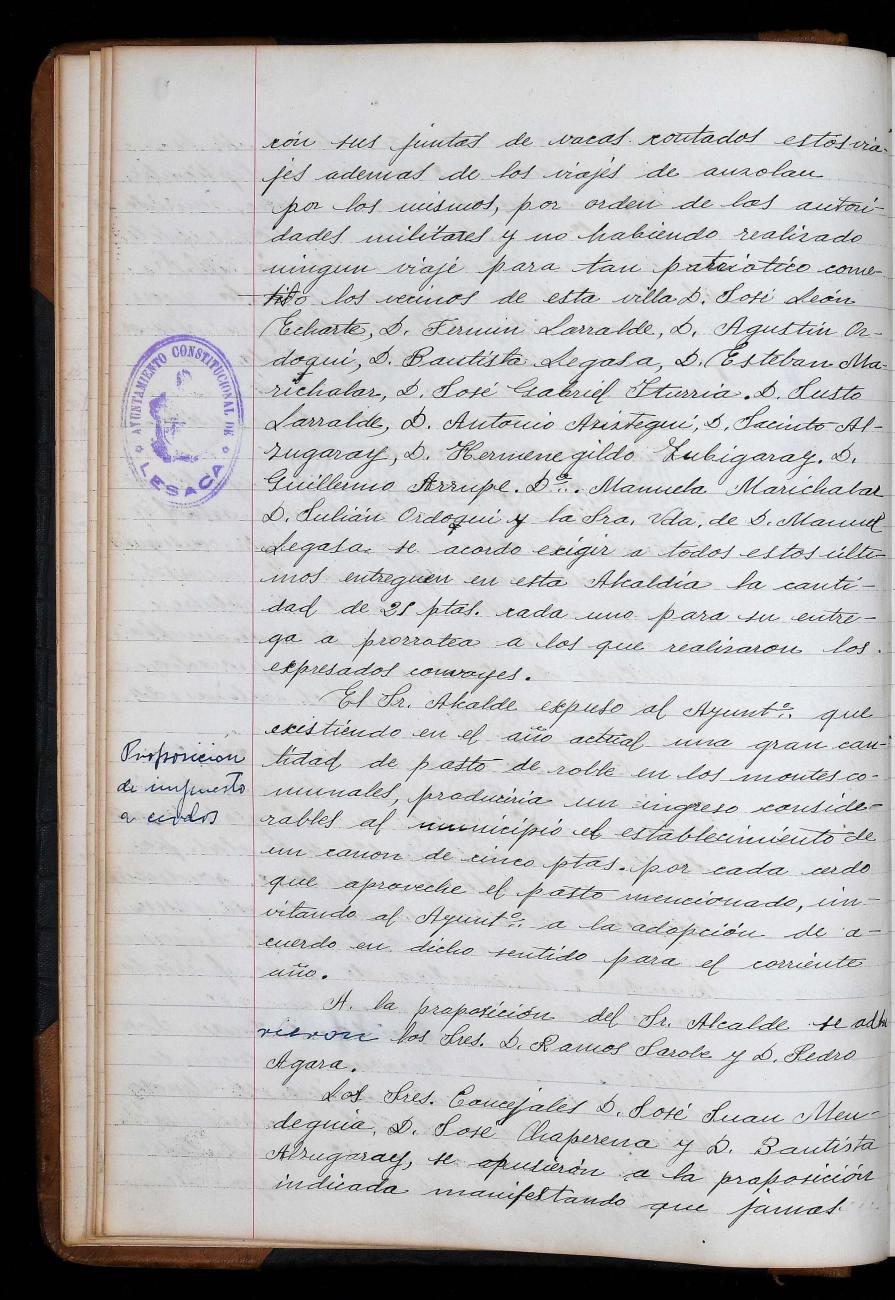 con sus juntas de vacas contados estos via-
jes ademas de los viajes de auzolan
por los mismos, por orden de las autori-
dades militares y no habiendo realizado
ningun viaje para tan patriotico come-
tido los vecinos de esta villa D. José León
Echarte, D. Fermin Larralde, D. Agustin Or-
doqui, D. Bautista Legasa, D. Esteban Ma-
richalar, D. José Gabriel Iturria. D. Justo
Larralde, D. Antonio Aristegui, D. Jacinto Al-
zugaray, D. Hermenegildo Zubigaray. D.
Guillermo Arrupe. Dª. Manuela Marichalar
D. Julián Ordoqui y la Sra. Vda. de D. Manuel
Legasa. se acordo exigir a todos estos ulti-
mos entreguen en esta Alcaldia la canti-
dad de 25 ptas. cada uno para su entre-
ga a prorratea a los que realizaron los
expresados convoyes.
El Sr. Alcalde expuso al Ayuntº. que
existiendo en el año actual una gran can-
tidad de pasto de roble en los montes co-
munales, produciria un ingreso conside-
rables al municipio el establecimiento de
un canon de cinco ptas. por cada cerdo
que aproveche el pasto mencionado, in-
vitando al Ayuntº. a la adopción de a-
cuerdo en dicho sentido para el corriente
año.
A la proposición del Sr. Alcalde se adhi
rieron los Sres. D. Ramos Sarobe y D. Pedro
Agara.
Los Sres. Concejales D. José Juan Men-
deguia, D. Jose Chaperena y D. Bautista
Alzugaray, se opusierón a la proposición
indicada manifestando que jamas
Proposicion
de impuesto
a cerdos
AYUNTAMIENTO CONSTITUCIONAL DE
LESACA